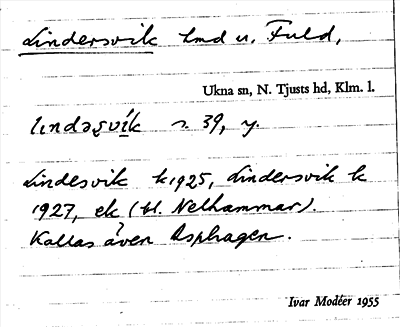 Lindersvik lmd u. Fuld,
Ukna sn, N. Tjusts hd, Klm. l.
lındəʂvík s. 39, y.
Lindesvik k 1925, Lindersvik k
1927, ek (bl. Nelhammar).
Kallas även Asphagen.
Ivar Modéer 1955